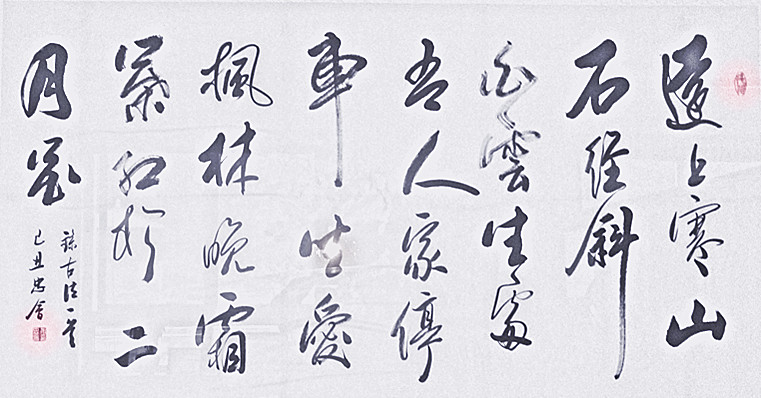 遠上寒山
石徑斜
白雲生處
有人家停
車坐愛
楓林晚霜
葉紅於二
月花
錄古詩一首
己丑